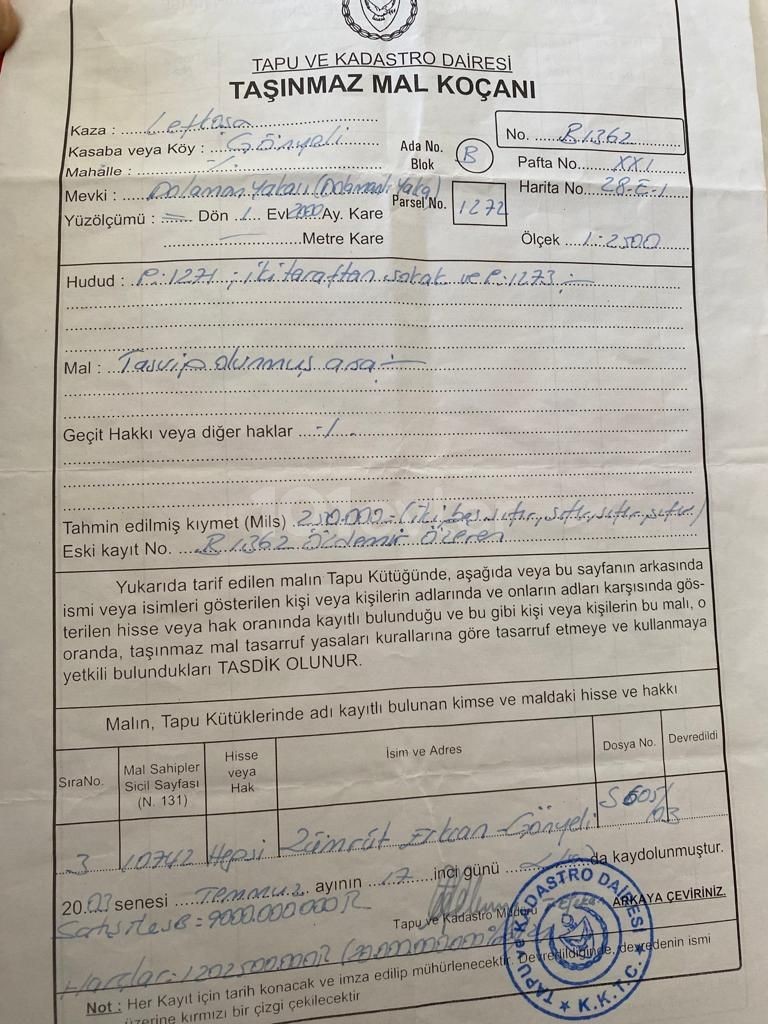 TAPU VE KADASTRO DAİRESİ
TAŞINMAZ MAL KOÇANI
Kaza : Lefkoşa
Kasaba veya Köy : Gönyeli
Mahâlle : -/.
Ada No. Blok B
No. R1362
Pafta No. XXI
Mevki : Dolaman Yakası (Dolamadi Yaka)
Parsel No. 1272
Harita No. 28-E-1
Yüzölçümü : Dön 1 Ev 2000 Ay. Kare
Metre Kare
Ölçek 1:2500
Hudud : P.1271; iki taraftan sokak ve P.1273;-
Mal : Tasvip olunmuş arsa;-
Geçit Hakkı veya diğer haklar -/.
Tahmin edilmiş kıymet (Mils) 250.000- (iki, beş, sıfır, sıfır, sıfır, sıfır)
Eski kayıt No. R1362 Özdemir Özeren
Yukarıda tarif edilen malın Tapu Kütüğünde, aşağıda veya bu sayfanın arkasında
ismi veya isimleri gösterilen kişi veya kişilerin adlarında ve onların adları karşısında gös-
terilen hisse veya hak oranında kayıtlı bulunduğu ve bu gibi kişi veya kişilerin bu malı, o
oranda, taşınmaz mal tasarruf yasaları kurallarına göre tasarruf etmeye ve kullanmaya
yetkili bulundukları TASDİK OLUNUR.
Malın, Tapu Kütüklerinde adı kayıtlı bulunan kimse ve maldaki hisse ve hakkı
SıraNo.
Mal Sahipler Sicil Sayfası (N. 131)
Hisse veya Hak
İsim ve Adres
Dosya No.
Devredildi
3 10742 Hepsi Zümrüt Erkan Gönyeli S 605/03
2003 senesi Temmuz ayının 17 inci günü da kaydolunmuştur.
Satış 9000.000.000
Tapu ve Kadastro Müdürü
ARKAYA ÇEVİRİNİZ.
Harçlar:
TAPU ve KADASTRO DAİRESİ
K.K.T.C.
Not : Her Kayıt için tarih konacak ve imza edilip mühürlenecektir. Devredildiğinde, devredenin ismi
üzerine kırmızı bir çizgi çekilecektir